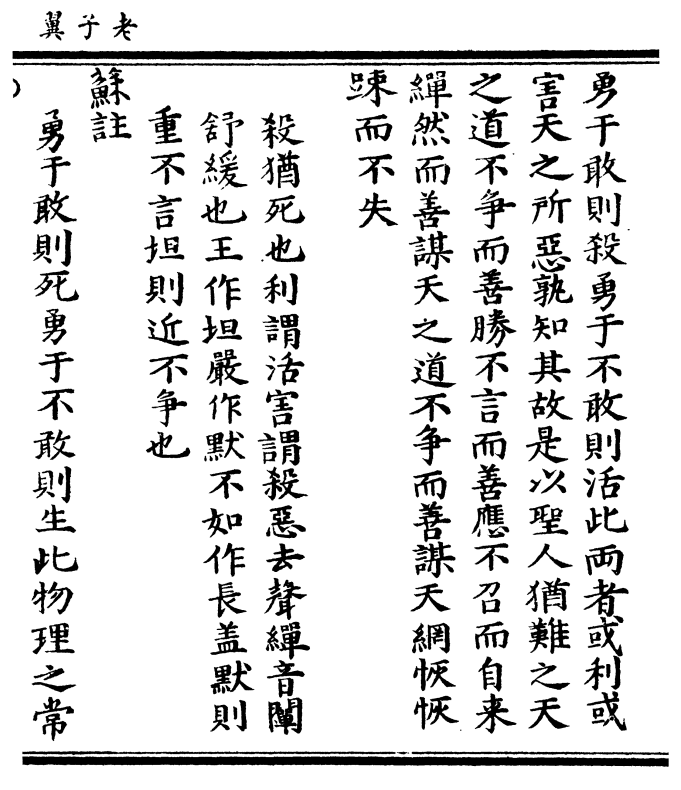 老子翼
勇于敢則殺勇于不敢則活此兩者或利或
害天之所惡孰知其故是以聖人猶難之天
之道不爭而善勝不言而善應不召而自来
繟然而善謀天之道不爭而善謀天網恢恢
踈而不失
殺猶死也利謂活害謂殺惡去聲繟音闡
舒緩也王作坦嚴作默不如作長盖默則
重不言坦則近不爭也
蘇註
勇于敢則死勇于不敢則生此物理之常